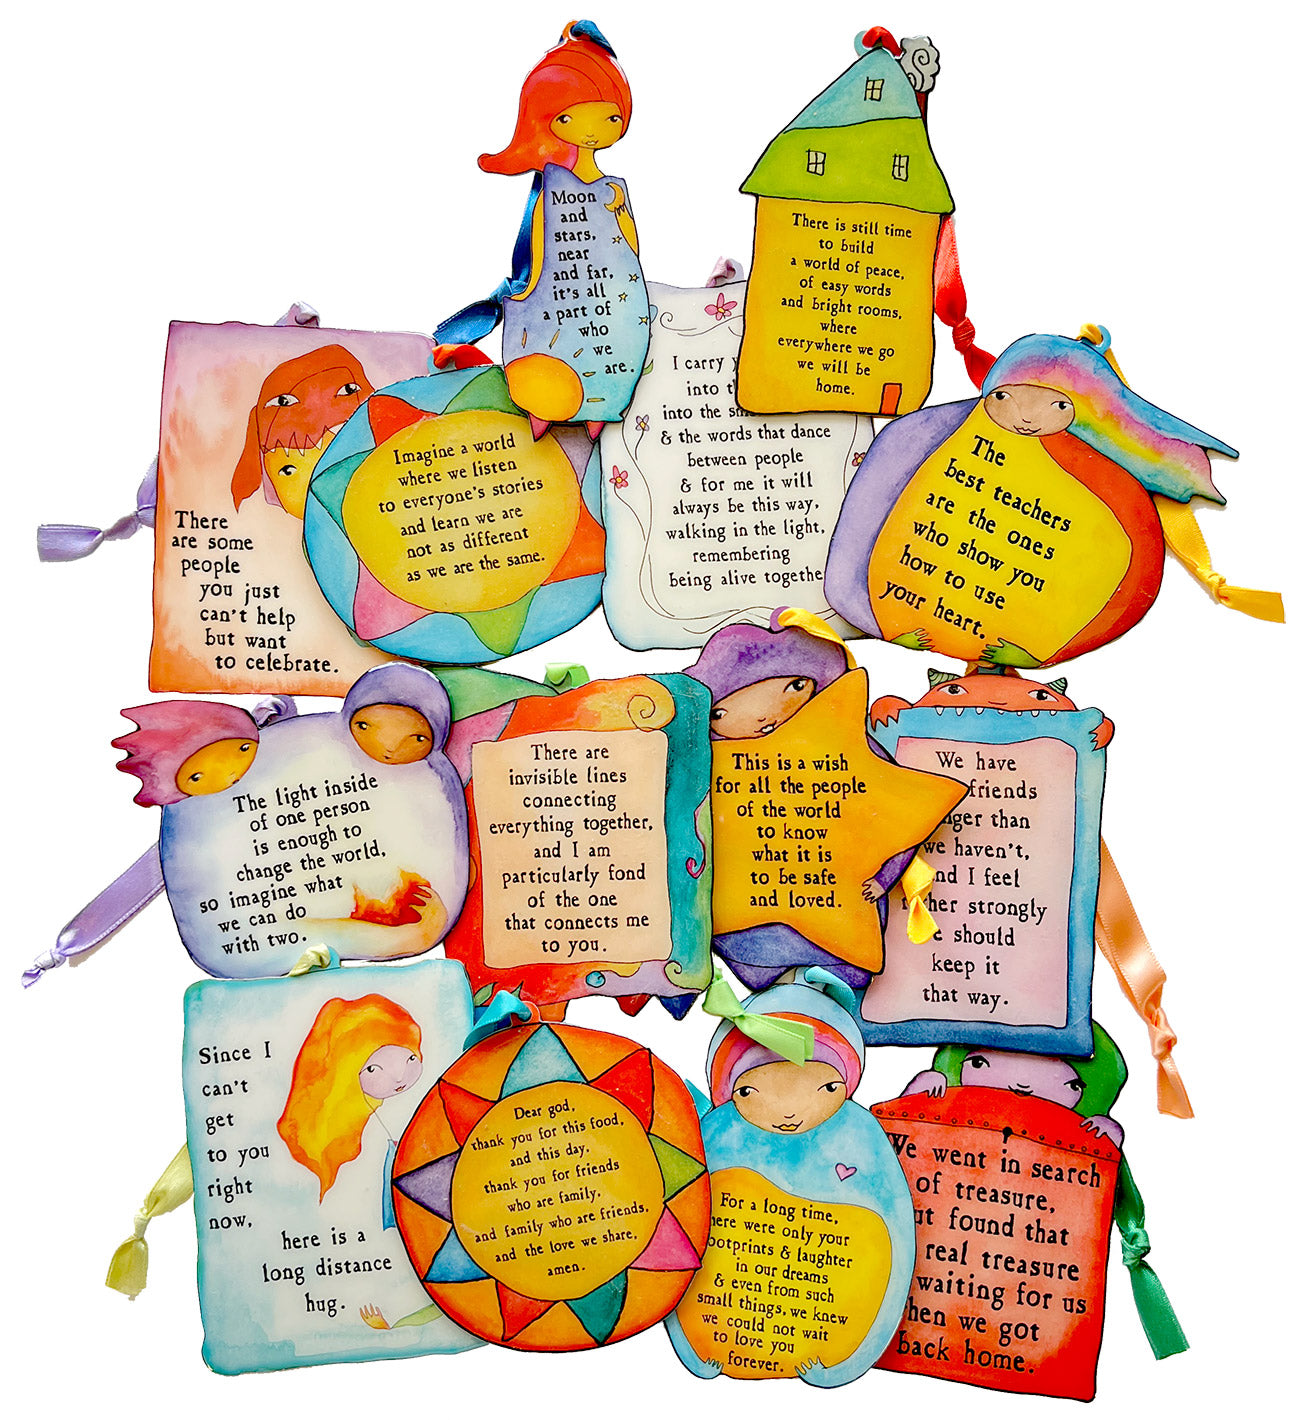 Moon
and
stars,
near
and far,
it's all
a part of
who
we
are.
There is still time
to build
a world of peace,
of easy words
and bright rooms,
where
everywhere we go
we will be
home.
There
are some
people
you just
can't help
but want
to celebrate.
Imagine a world
where we listen
to everyone's stories
and learn we are
not as different
as we are the same.
I carry
into
into the
& the words that dance
between people
& for me it will
always be this way,
walking in the light,
remembering
being alive
The
best teachers
are the ones
who show you
how to use
your heart.
The light inside
of one person
is enough to
change the world,
so imagine what
we can do
with two.
There are
invisible lines
connecting
everything together,
and I am
particularly fond
of the one
that connects me
to you.
This is a wish
for all the people
of the world
to know
what it is
to be safe
and loved.
We have
friends
than
we haven't,
I feel
strongly
should
keep it
that way.
Since I
can't
get
to you
right
now,
here is a
long distance
hug.
Dear god,
thank you for this food,
and this day,
thank you for friends
who are family,
and family who are friends,
and the love we share,
amen.
For a long time,
were only your
& laughter
in our dreams
& even from such
small things, we knew
we could not wait
to love you
forever.
We went in search
of treasure,
found that
real treasure
waiting for us
we got
back home.